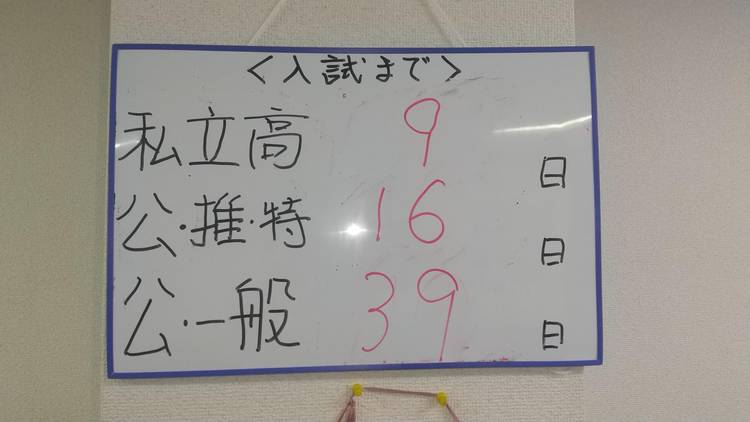 <入試まで>
私立高 9日
公・推・特 16日
公・一般 39日